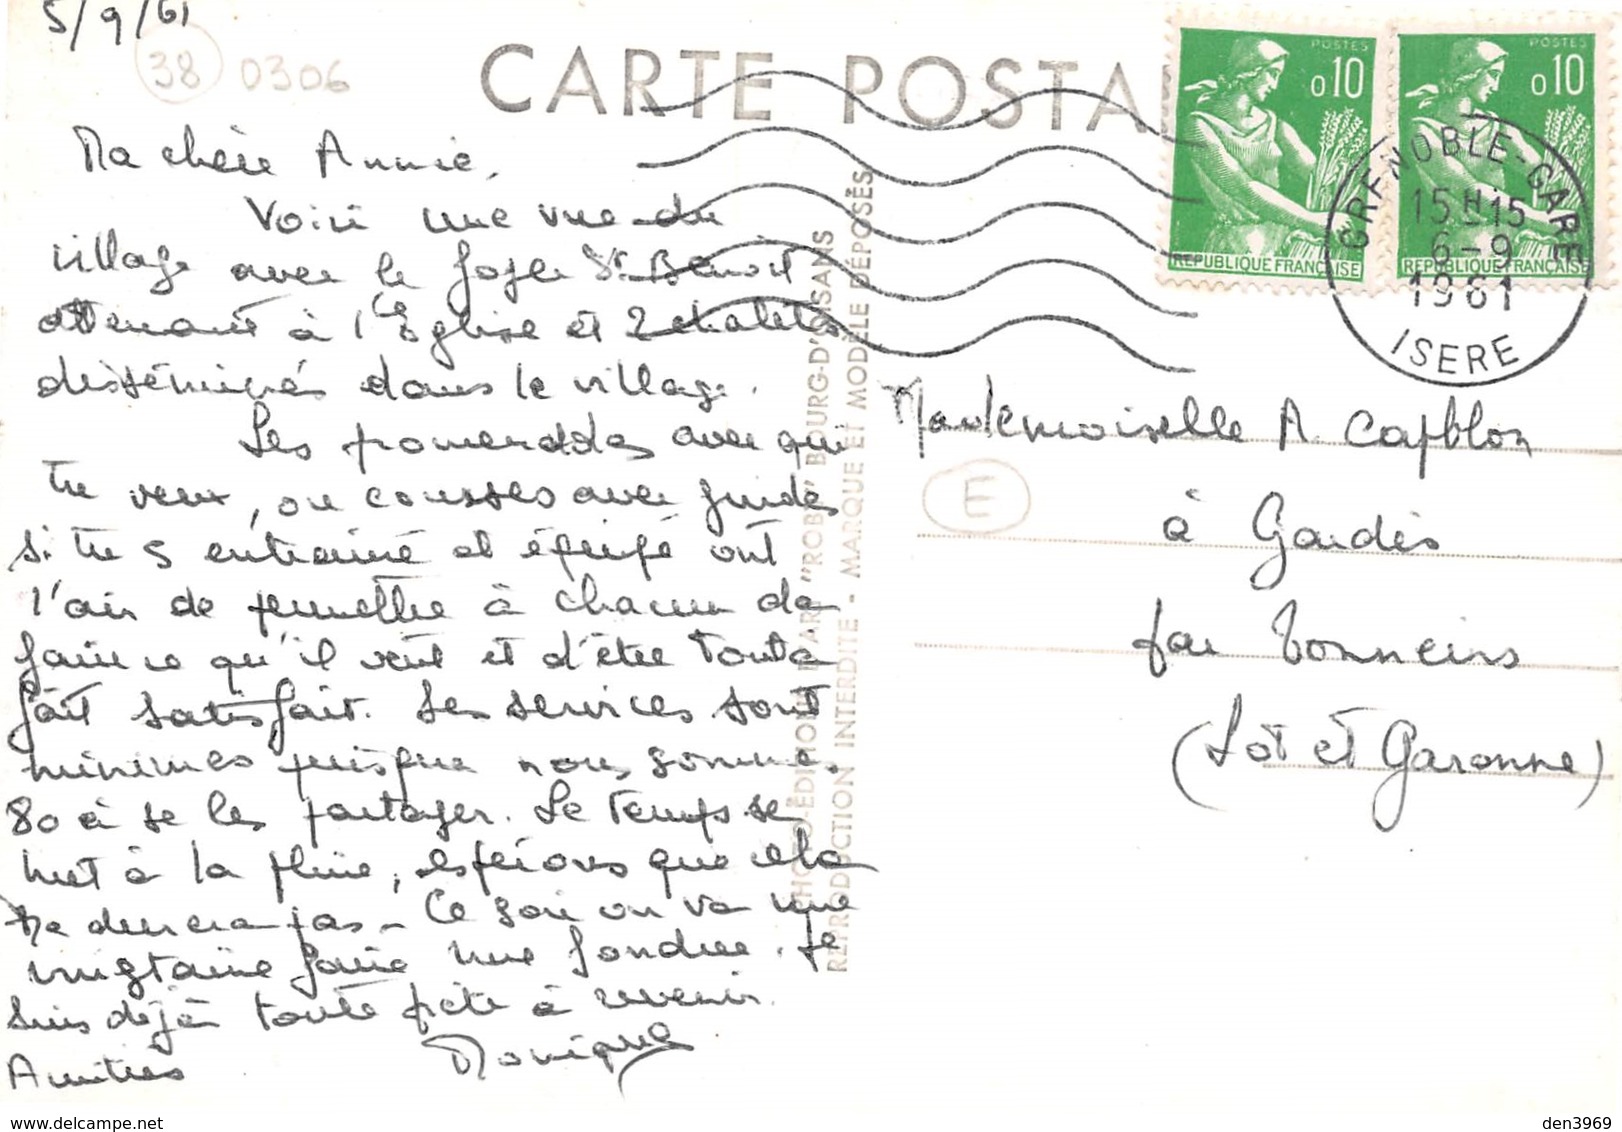 5/9/61
38 0306
CARTE POSTA
POSTES
0,10
REPUBLIQUE FRANÇAISE
POSTES
0,10
REPUBLIQUE FRANÇAISE
GRENOBLE-GARE
15H15
6-9
1961
ISERE
Ma chère Annie,
Voici une vue du
village avec le foyer St Benoit
attenant à l'Eglise et 2 chalets
disséminés dans le village.
Les promenades avec qui
tu veux, ou courses avec guides
si tu es entrainé et équipé ont
l'air de permettre à chacun de
faire ce qu'il veut et d'être tout à
fait satisfait. Les services sont
minimes puisque nous sommes
80 à se les partager. Le temps se
met à la pluie, espérons que cela
ne durera pas - Ce soir on va une
vingtaine faire une fondue. Je
suis déjà toute prête à revenir.
Amitiés Monique
PHOTO-ÉDITION D'ART "ROBY" BOURG-D'OISANS
REPRODUCTION INTERDITE - MARQUE ET MODÈLE DÉPOSÉS
Mademoiselle A. Capblon
E
à Gaudès
par Tonneins
(Lot et Garonne)
den3969